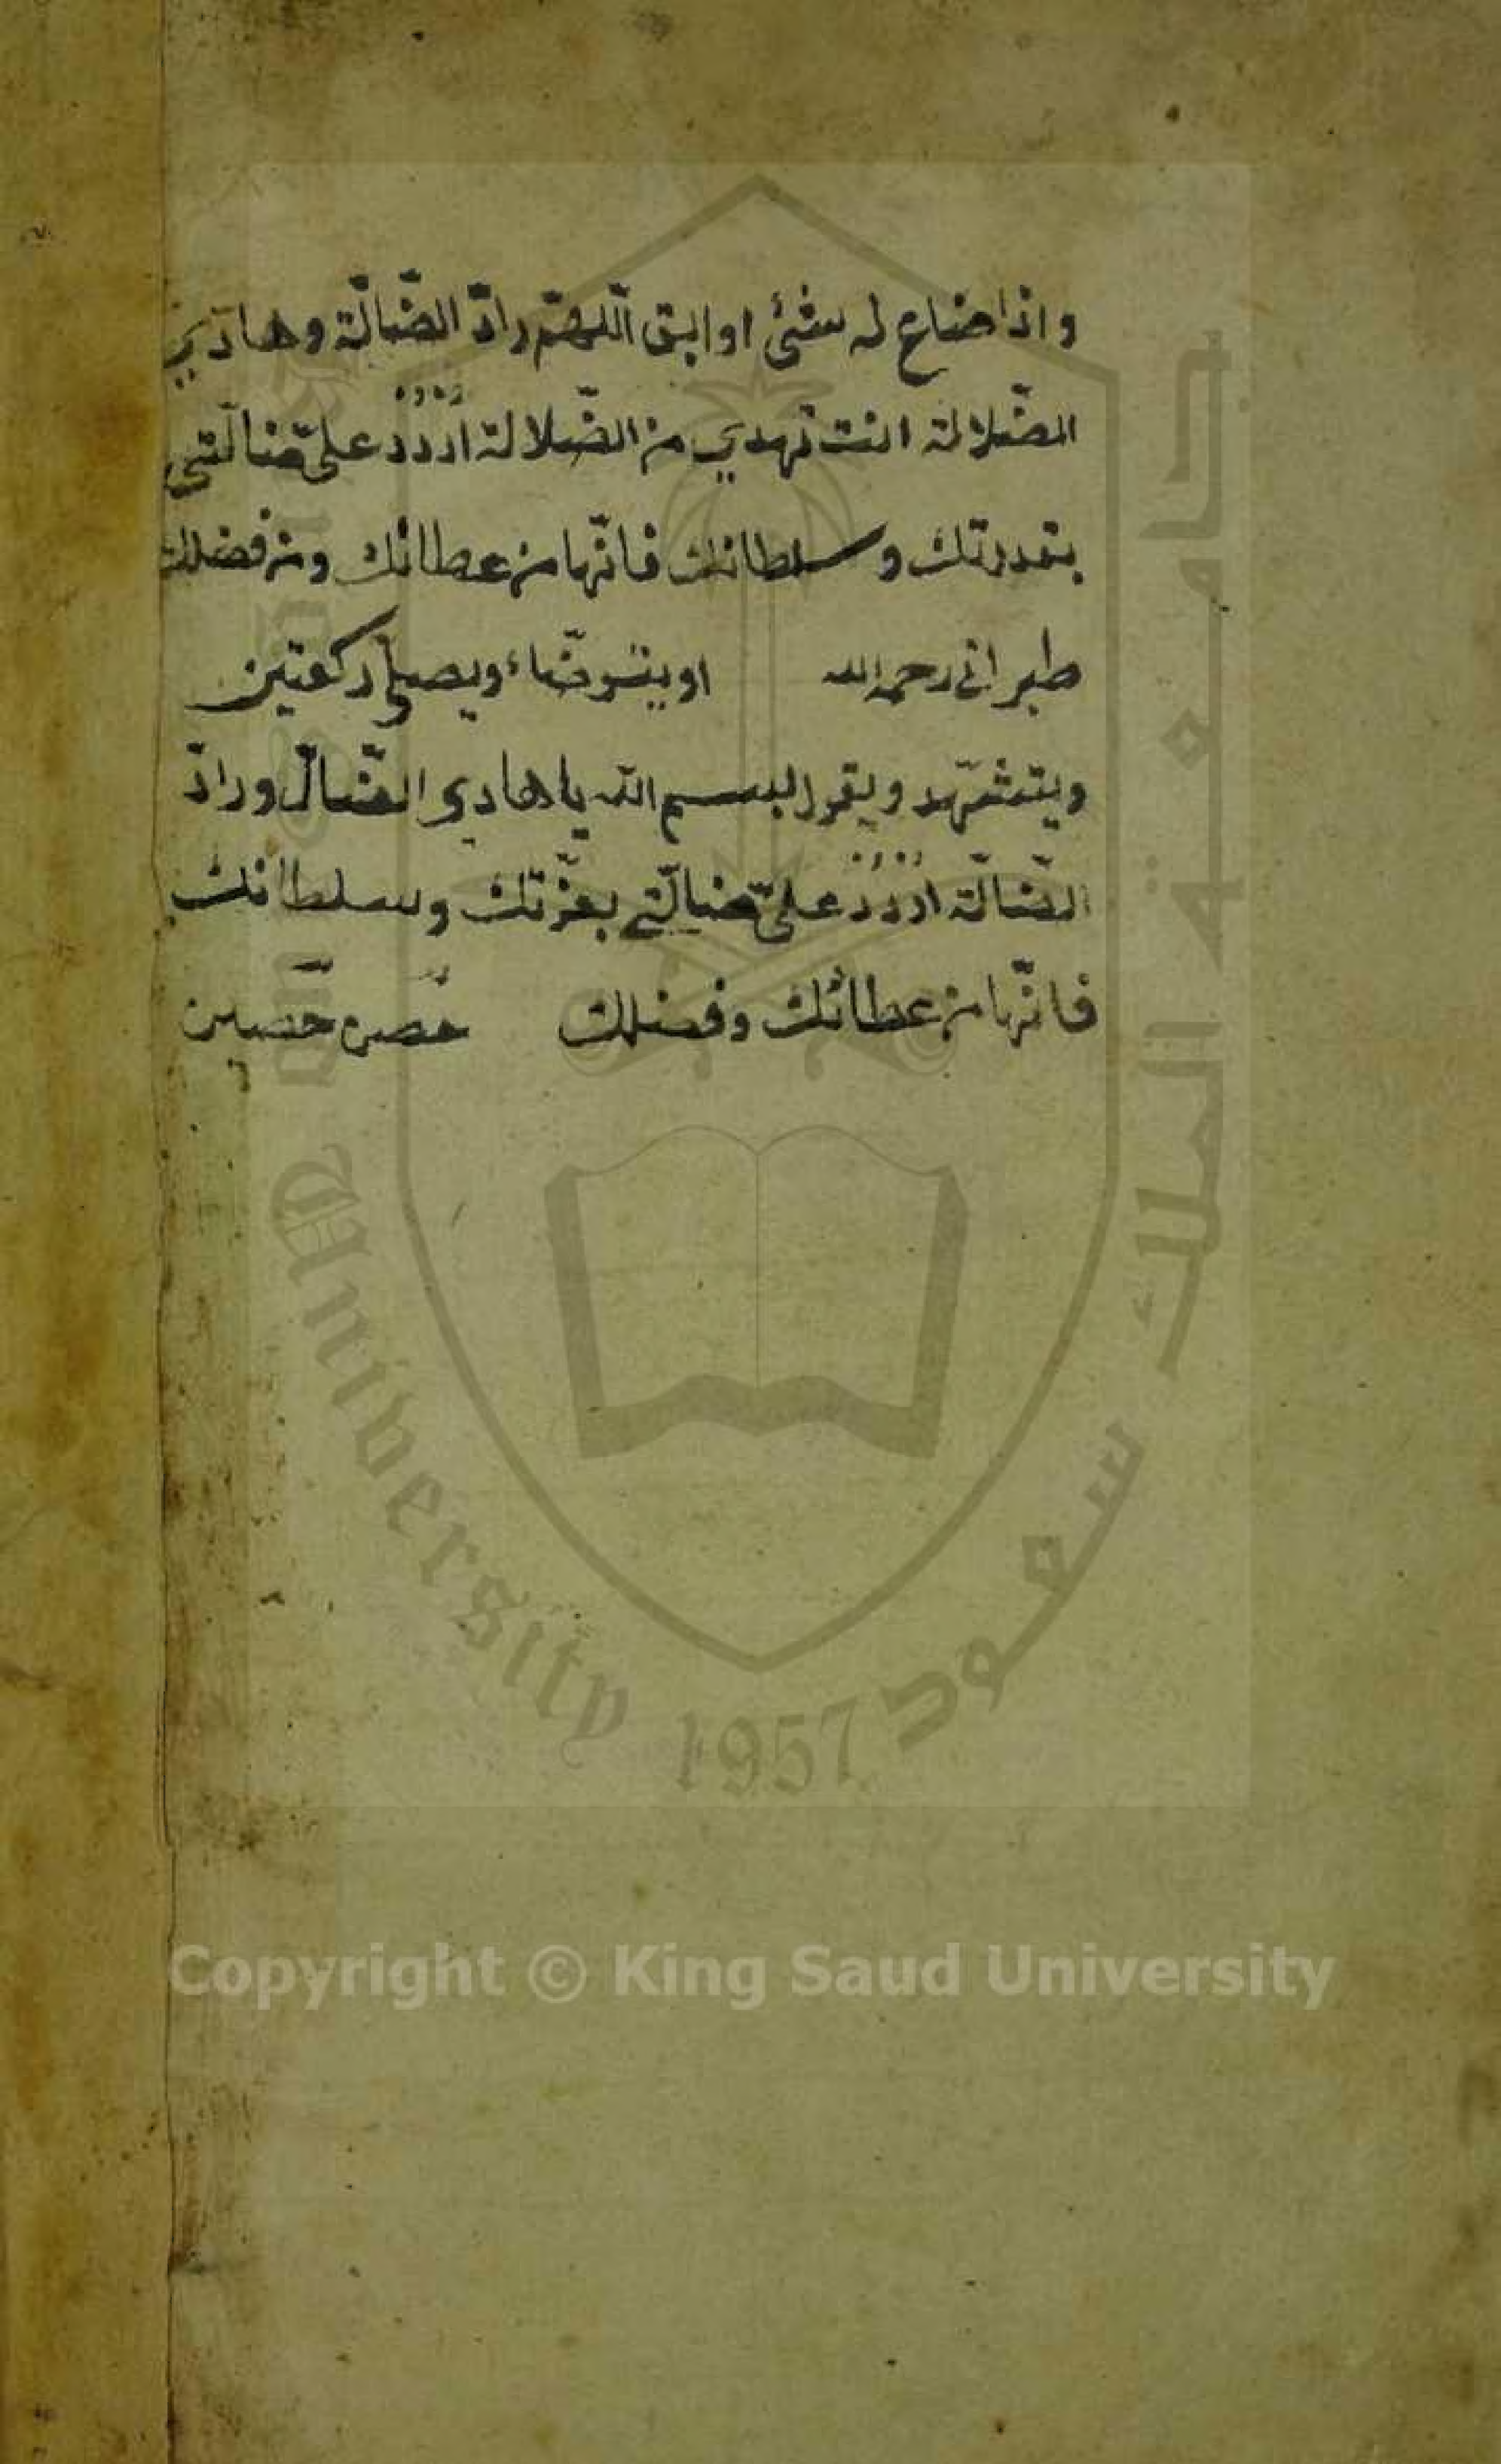 واذا ضاع له شئ او ابق اللّهمّ رادّ الضّالّة وهادي
الضّلالة انت تهدي من الضّلالة اُرْدُدْ علىّ ضالّتى
بقدرتك وسلطانك فانّها من عطائك ومن فضلك
طبرانى رحمه الله او يتوضّاء ويصلى ركعتين
ويتشهّد ويقول بسم الله يا هادى الضّالّ ورادّ
الضّالّة اُرْدُدْ علىّ ضالّتي بعزّتك وسلطانك
فانّها من عطائك وفضلك حصن حصين
جامعة الملك سعود
University 1957
Copyright © King Saud University